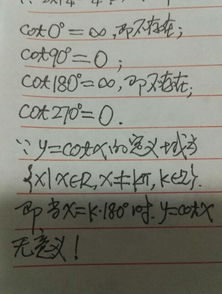 cot0°=∞,即不存在;
cot90°=0;
cot180°=∞,即不存在;
cot270°=0.
∵y=cotx的定义域为
{x|x∈R,x≠kπ,k∈Z}.
即当x=k·180°时.y=cotx
无意义!